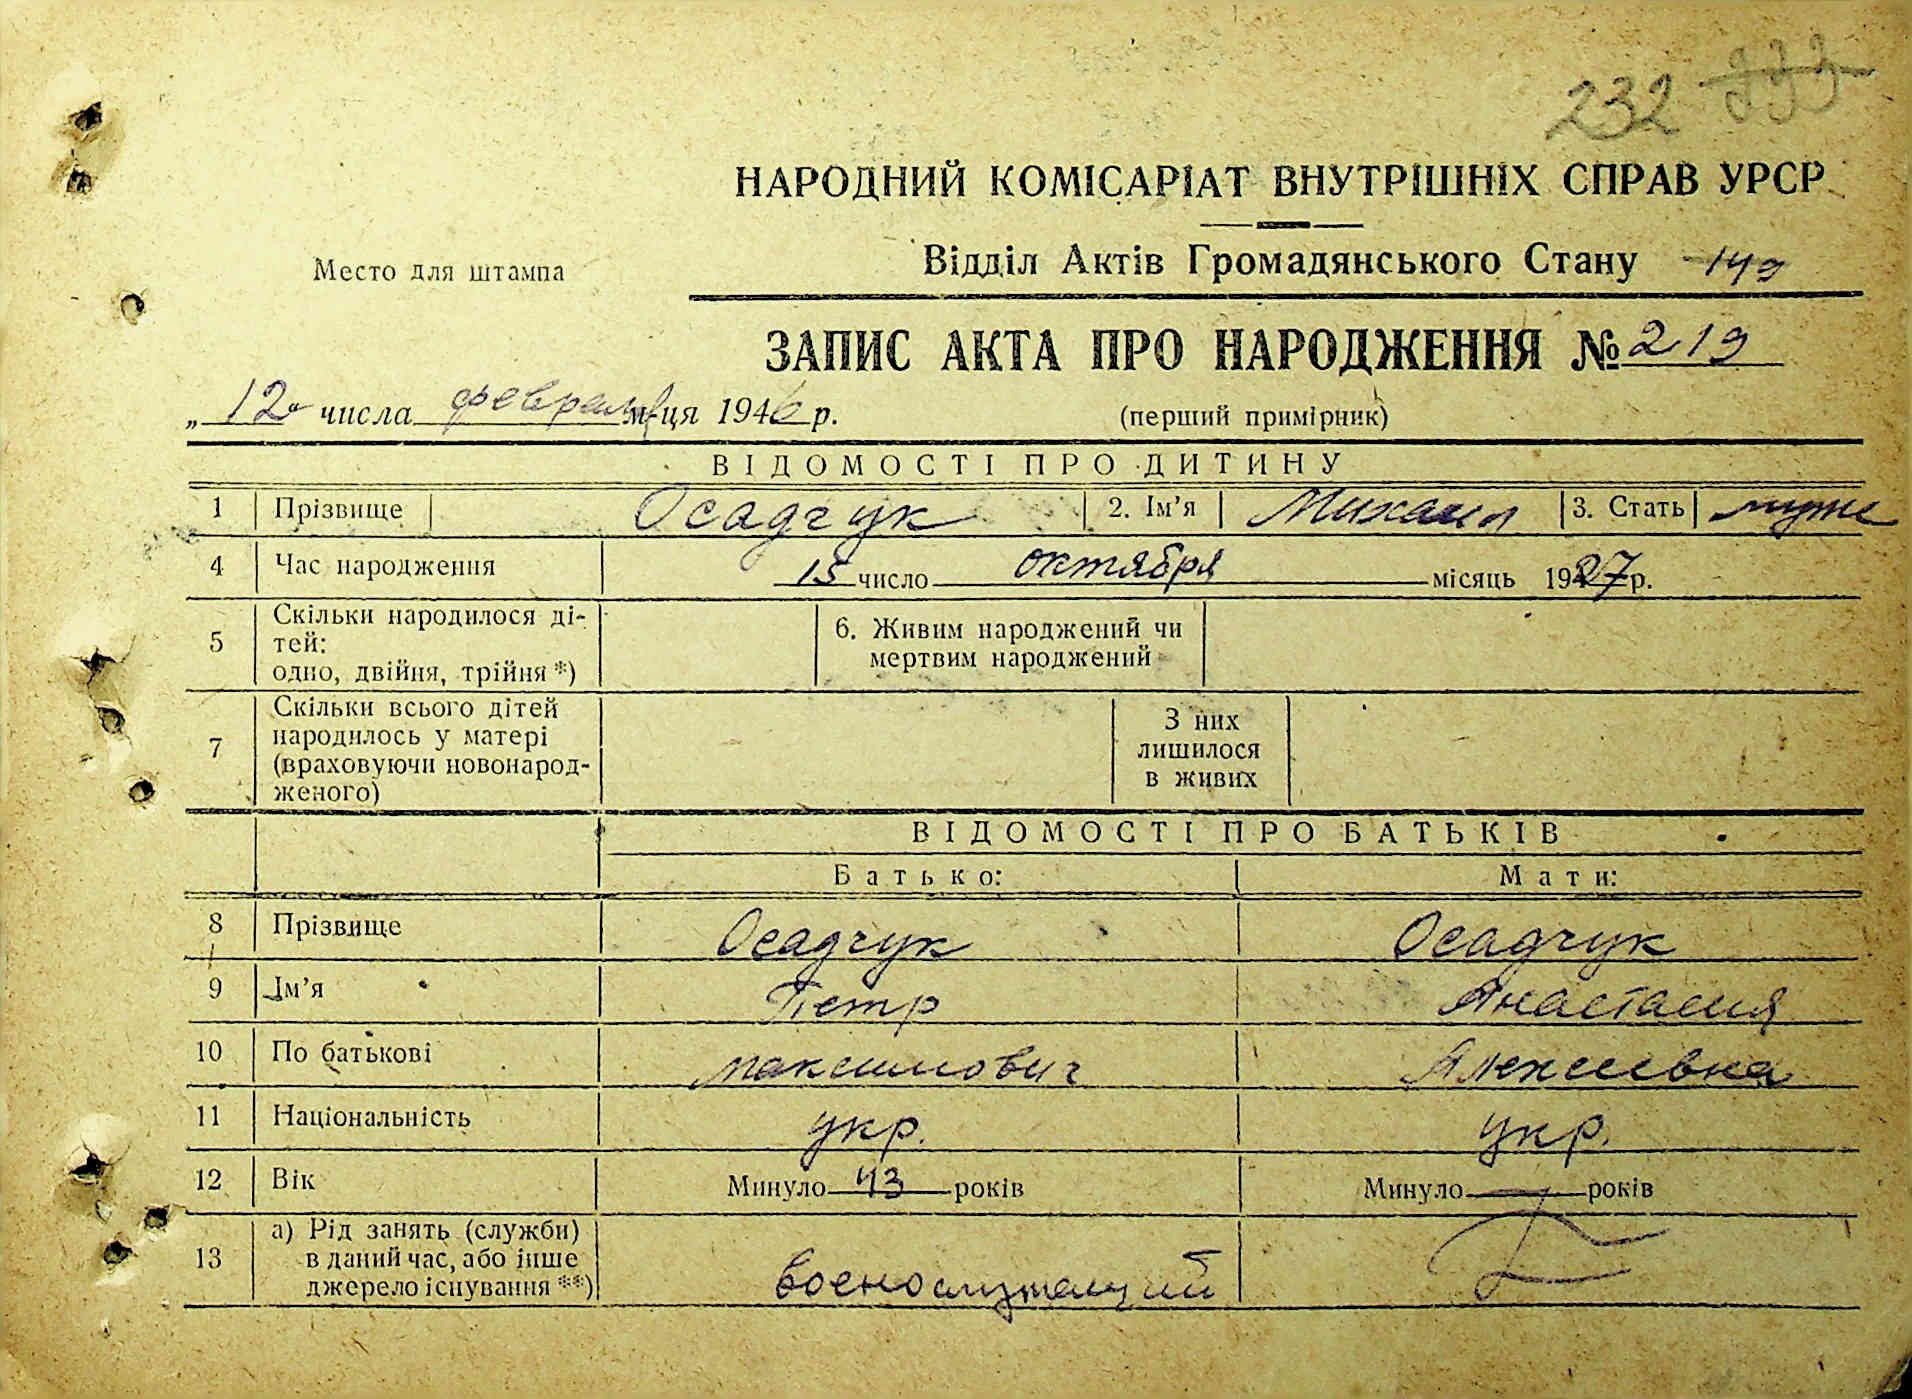 232 333
НАРОДНИЙ КОМІСАРІАТ ВНУТРІШНІХ СПРАВ УРСР
Место для штампа
Відділ Актів Громадянського Стану
ЗАПИС АКТА ПРО НАРОДЖЕННЯ № 219
„ 12 числа февраля м-ця 1946 р.
(перший примірник)
ВІДОМОСТІ ПРО ДИТИНУ
1 Прізвище Осадчук 2. Ім'я Михаил 3. Стать муже
4 Час народження 15 число октября місяць 1927 р.
5 Скільки народилося ді-
тей:
одно, двійня, трійня *)
6. Живим народжений чи
мертвим народжений
7 Скільки всього дітей
народилось у матері
(враховуючи новонарод-
женого)
З них
лишилося
в живих
ВІДОМОСТІ ПРО БАТЬКІВ
Батько: Мати:
8 Прізвище Осадчук Осадчук
9 Ім'я Петр Анастасия
10 По батькові Максимович Алексеевна
11 Національність укр. укр.
12 Вік Минуло 43 років Минуло — років
13 а) Рід занять (служби)
в даний час, або інше
джерело існування **)
военослужащий